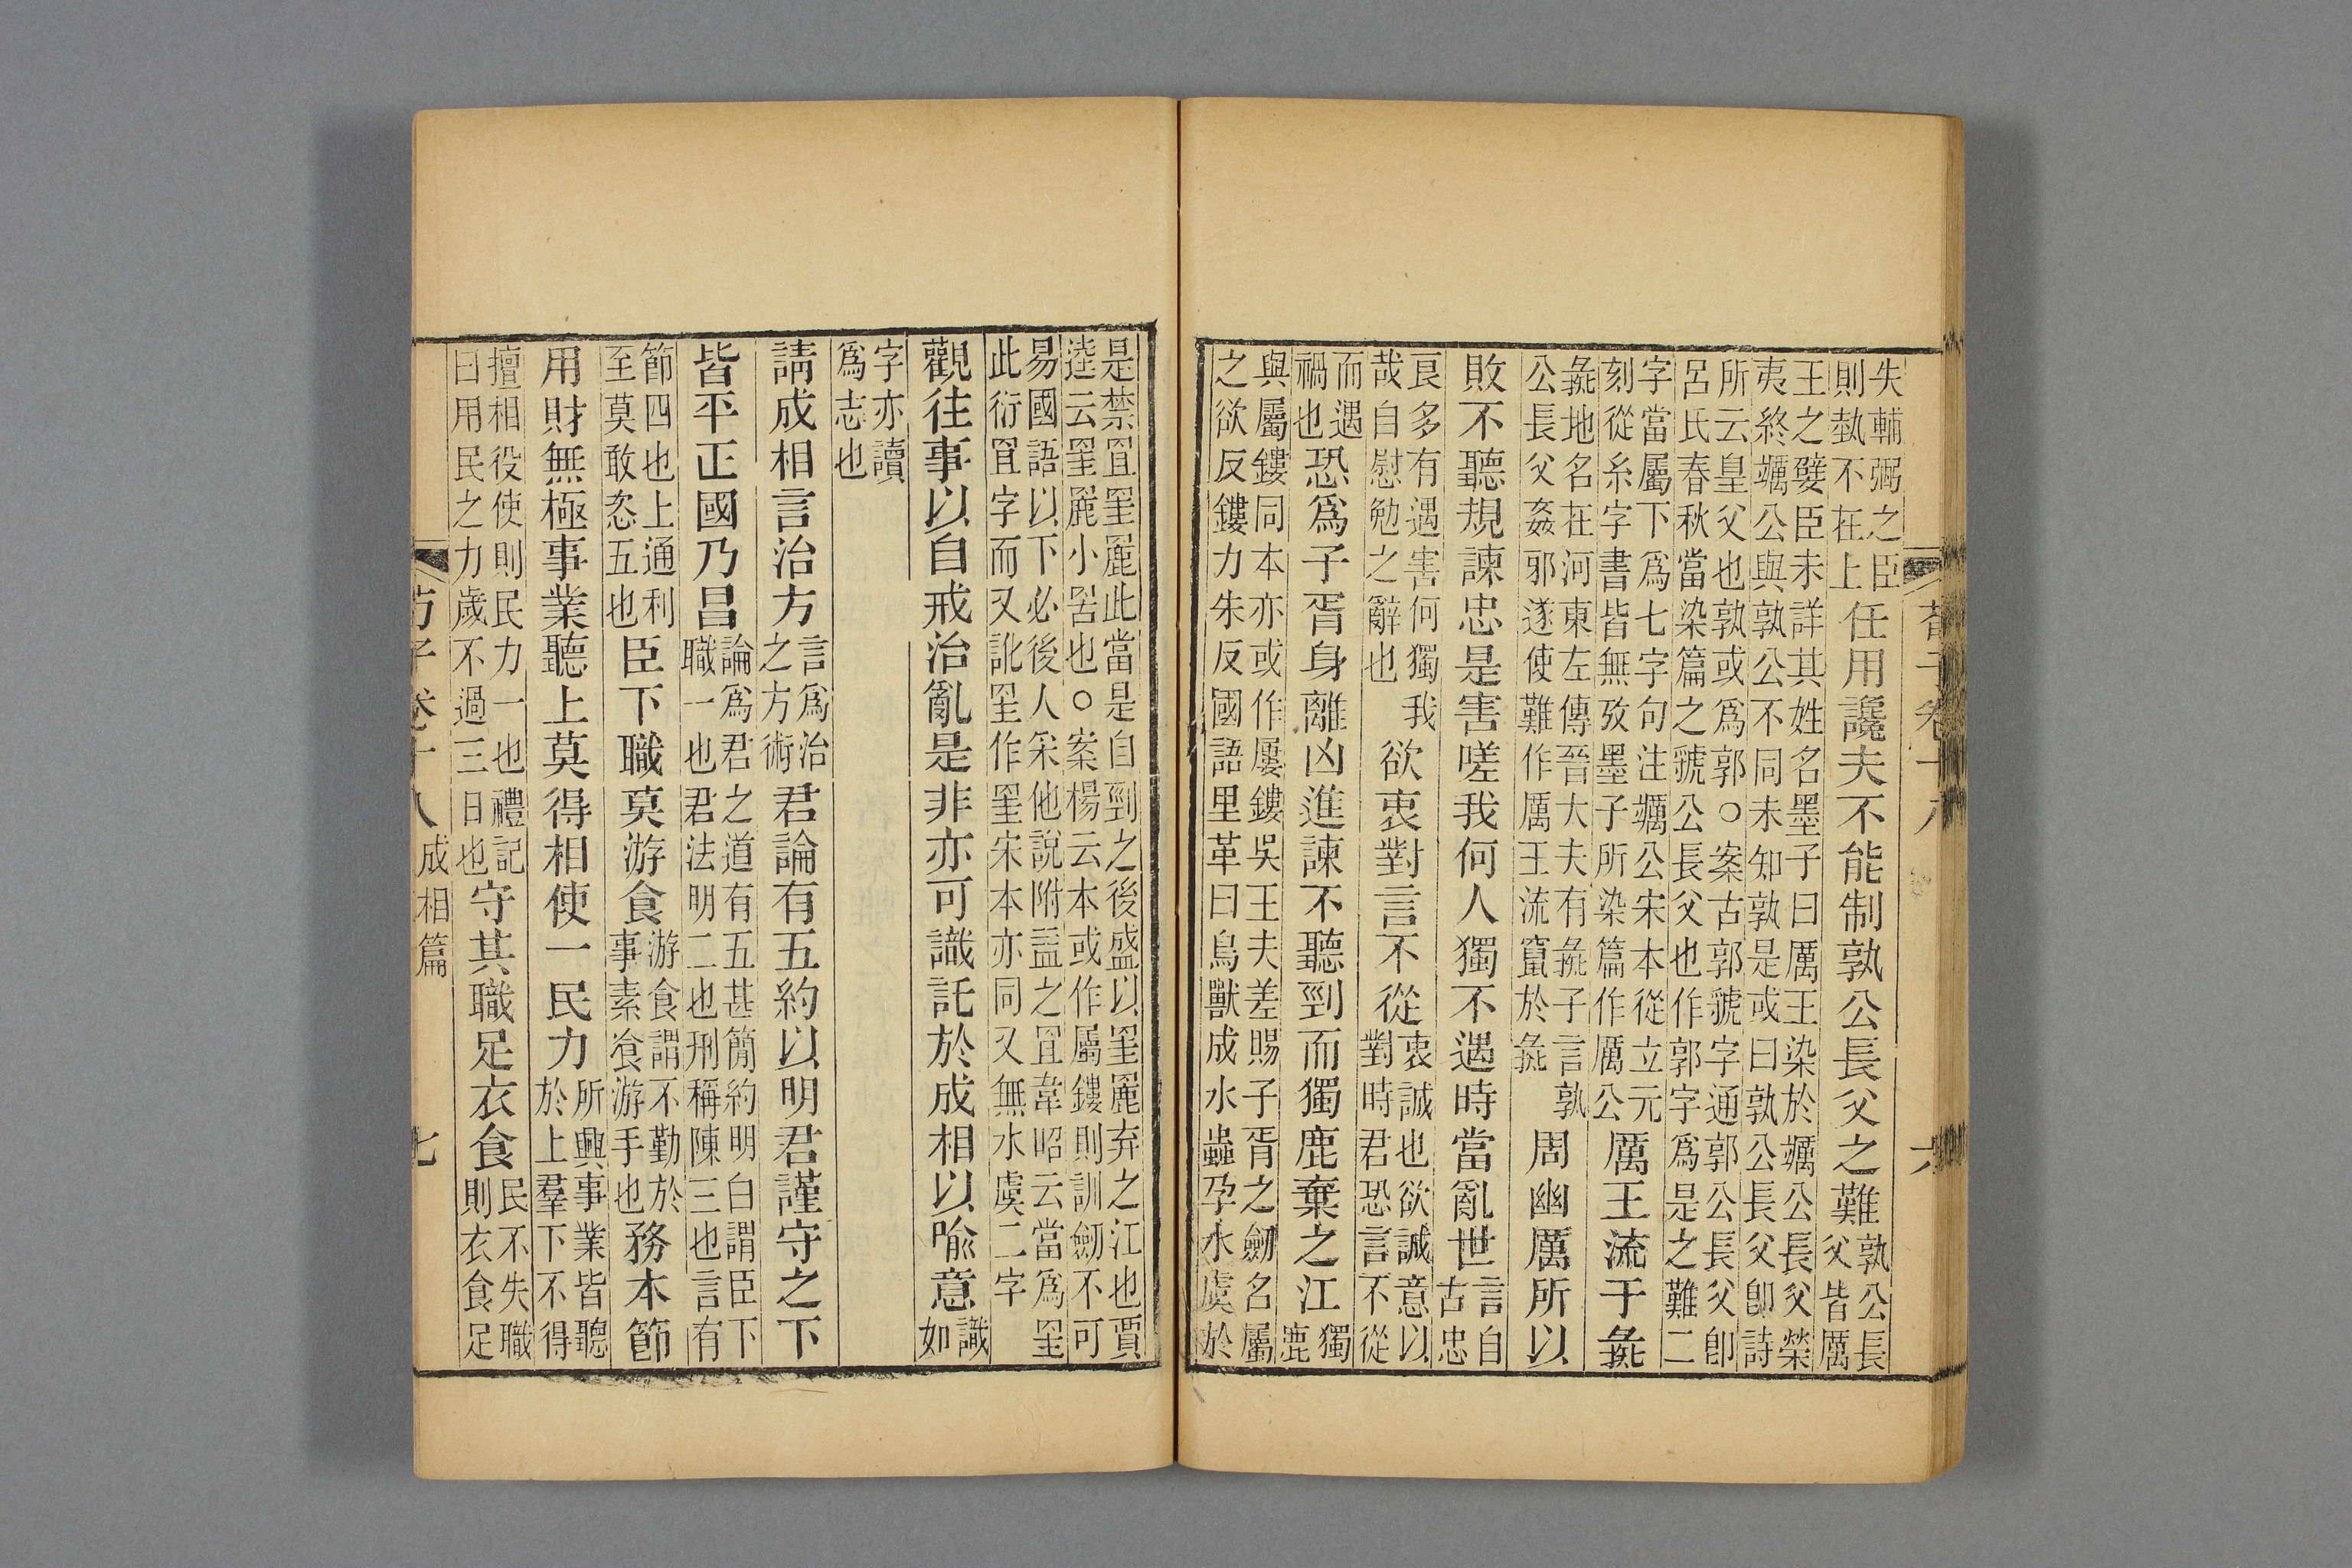 荀子卷十八 六
失輔弼之臣
則埶不在上
任用讒夫不能制孰公長父之難
孰公長
父皆厲
王之嬖臣未詳其姓名墨子曰厲王染於蠣公長父榮
夷終蠣公與孰公不同未知孰是或曰孰公長父卽詩
所云皇父也孰或爲郭○案古郭虢字通郭公長父卽
呂氏春秋當染篇之虢公長父也作郭字爲是之難二
字當屬下爲七字句注蠣公宋本從立元
刻從糸字書皆無攷墨子所染篇作厲公
厲王流于彘
彘地名在河東左傳晉大夫有彘子言孰
公長父姦邪遂使難作厲王流竄於彘
周幽厲所以
敗不聽規諫忠是害嗟我何人獨不遇時當亂世
言自
古忠
良多有遇害何獨我
哉自慰勉之辭也
欲衷對言不從
衷誠也欲誠意以
對時君恐言不從
而遇
禍也
恐爲子胥身離凶進諫不聽剄而獨鹿棄之江
獨
鹿
與屬鏤同本亦或作屢鏤吳王夫差賜子胥之劒名屬
之欲反鏤力朱反國語里革曰鳥獸成水蟲孕水虞於
是禁罝罜䍡此當是自剄之後盛以罜䍡弃之江也賈
逵云罜䍡小罟也○案楊云本或作屬鏤則訓劒不可
易國語以下必後人采他說附益之罝韋昭云當爲罜
此衍罝字而又訛罜作罜宋本亦同又無水虞二字
觀往事以自戒治亂是非亦可識託於成相以喩意
識
如
字亦讀
爲志也
請成相言治方
言爲治
之方術
君論有五約以明君謹守之下
皆平正國乃昌
論爲君之道有五甚簡約明白謂臣下
職一也君法明二也刑稱陳三也言有
節四也上通利
至莫敢恣五也
臣下職莫游食
游食謂不勤於
事素飡游手也
務本節
用財無極事業聽上莫得相使一民力
所興事業皆聽
於上羣下不得
擅相役使則民力一也禮記
曰用民之力歲不過三日也
守其職足衣食
民不失職
則衣食足
荀子卷十八 成相篇 七